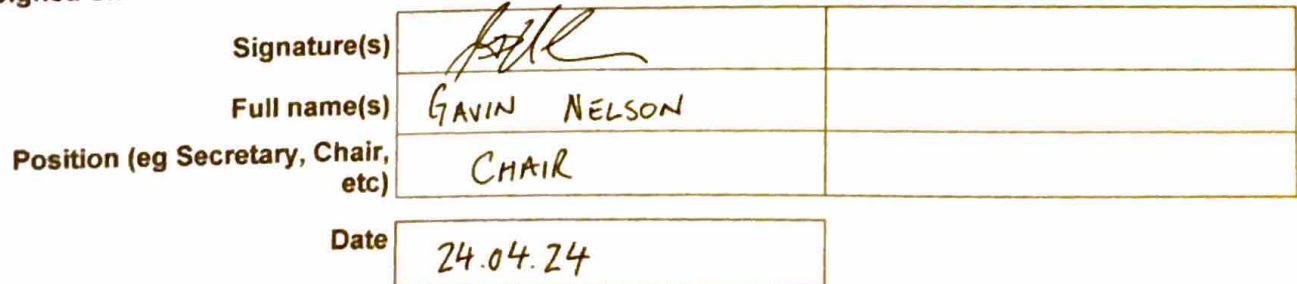 Signature(s)
Full name(s) GAVIN NELSON
Position (eg Secretary, Chair, CHAIR
etc)
Date 24.04.24